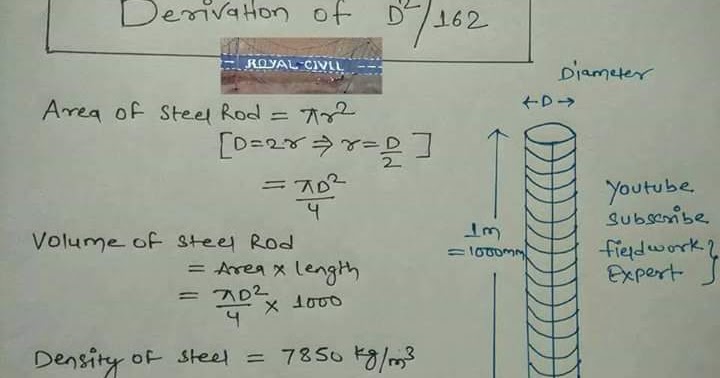 Derivation of D²/162
ROYAL CIVIL
Area of Steel Rod = πr²
[D=2r ⇒ r=D/2]
= πD²/4
Volume of Steel Rod
= Area x length
= πD²/4 x 1000
Density of steel = 7850 kg/m³
Diameter
←D→
1m
=1000mm
Youtube
Subscribe
fieldwork
Expert